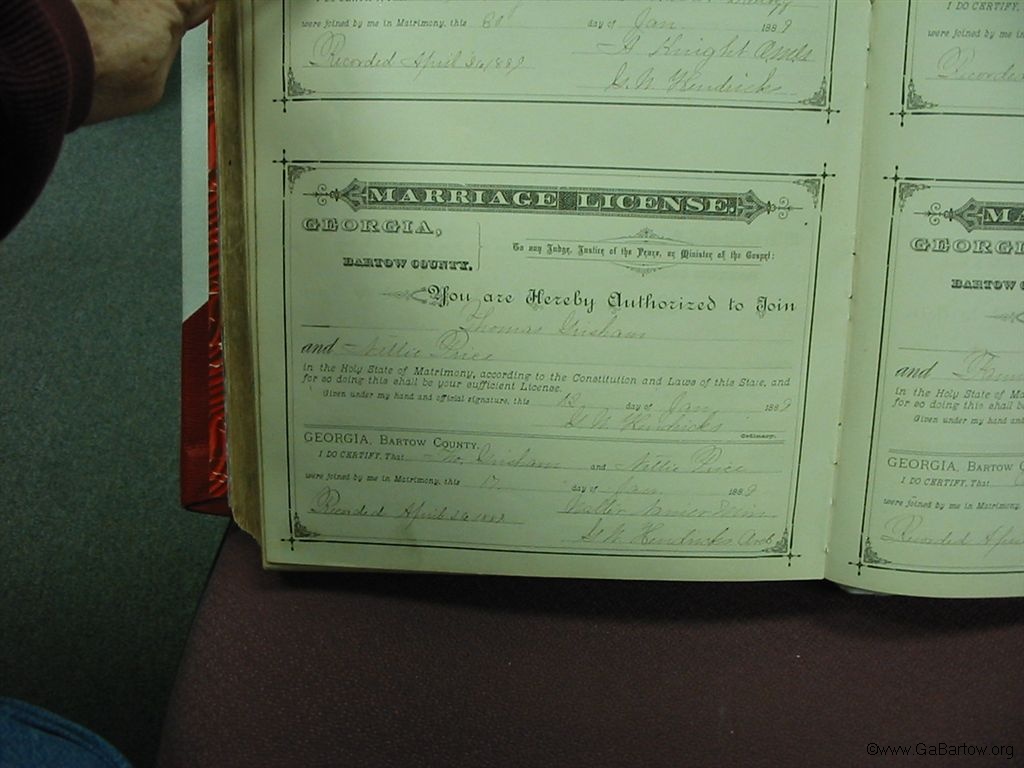 were joined by me in Matrimony, this day of Jan 1889
A Knight
Recorded April 26 1889
G. W. Hendricks
MARRIAGE LICENSE.
GEORGIA,
BARTOW COUNTY.
To any Judge, Justice of the Peace, or Minister of the Gospel:
You are Hereby Authorized to Join
Thomas Grisham
and Nellie Price
in the Holy State of Matrimony, according to the Constitution and Laws of this State, and
for so doing this shall be your sufficient License.
Given under my hand and official signature, this 12 day of Jan 1889
G. W. Hendricks
Ordinary.
GEORGIA, BARTOW COUNTY.
I DO CERTIFY, That Grisham and Nellie Price
were joined by me in Matrimony, this day of Jan 1889
Recorded April 26 1889
G. W. Hendricks
I DO CERTIFY,
were joined by me in
Recorded
MA
GEORGI
BARTOW
and
in the Holy State of M
for so doing this shall b
Given under my hand and
GEORGIA, BARTOW C
I DO CERTIFY, That
were joined by me in Matrimony,
Recorded
©www.GaBartow.org